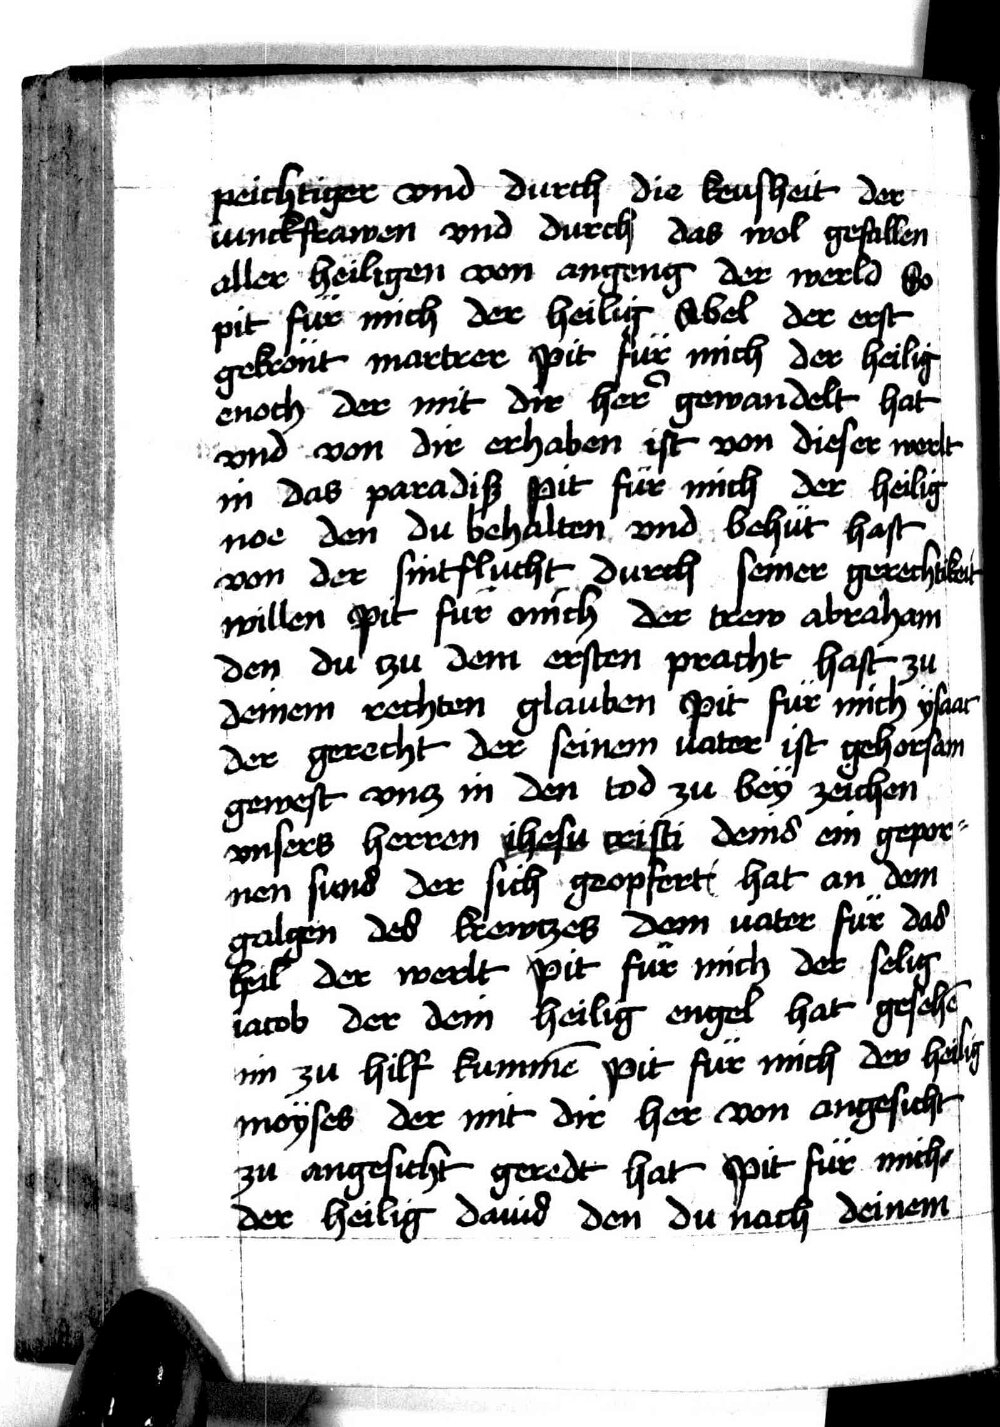 peichtiger vnd durch die keusheit der
iunckfrawen vnd durch das wol gefallen
aller heiligen von angeng der werld So
pit für mich der heilig Abel der erst
gekrönt martrer Pit für mich der heilig
enoch der mit dir her gewandelt hat
vnd von dir erhaben ist von dieser werlt
in das paradiß Pit für mich der heilig
noe den du behalten vnd behüt hast
von der sintflucht durch seiner gerechtikeit
willen Pit für mich der trew abraham
den du tzu dem ersten pracht hast zu
deinem rechten glauben Pit für mich ÿsaac
der gerecht der seinem uater ist gehorsam
gewest vntz in den tod zu beÿ zeichen
vnsers herren ihesu cristi deins ein gepor=
nen suns der sich geopfert hat an dem
galgen des krewtzes dem uater für das
heil der werlt Pit für mich der selig
iacob der dein heilig engel hat gesehē
im zu hilf kummē Pit für mich der heilig
moÿses der mit dir her von angesicht
zu angesicht geredt hat Pit für mich
der heilig dauid den du nach deinem